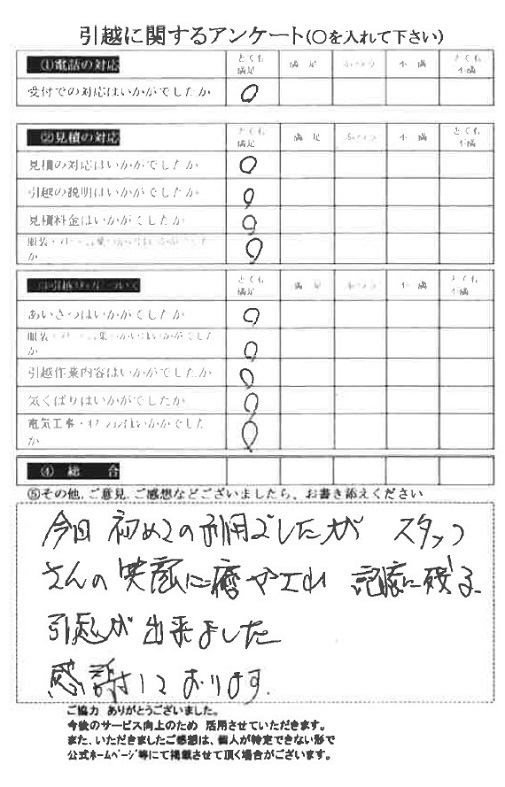 引越に関するアンケート(○を入れて下さい)
①電話の対応 とても満足 満足 ふつう 不満 とても不満
受付での対応はいかがでしたか ○
②見積の対応 とても満足 満足 ふつう 不満 とても不満
見積の対応はいかがでしたか ○
引越の説明はいかがでしたか ○
見積料金はいかがでしたか ○
服装・はいかがでしたか ○
とても満足 満足 ふつう 不満 とても不満
あいさつはいかがでしたか ○
服装・はいかがでしたか ○
引越作業内容はいかがでしたか ○
気くばりはいかがでしたか ○
電気工事・はいかがでしたか ○
④総合
⑤その他、ご意見、ご感想などございましたら、お書き添えください
今回 初めての利用でしたが スタッフ
さんの笑顔に癒やされ 記憶に残る
引越が出来ました
感謝しております。
ご協力 ありがとうございました。
今後のサービス向上のため 活用させていただきます。
また、いただきましたご感想は、個人が特定できない形で
公式ホームページ等にて掲載させて頂く場合がございます。